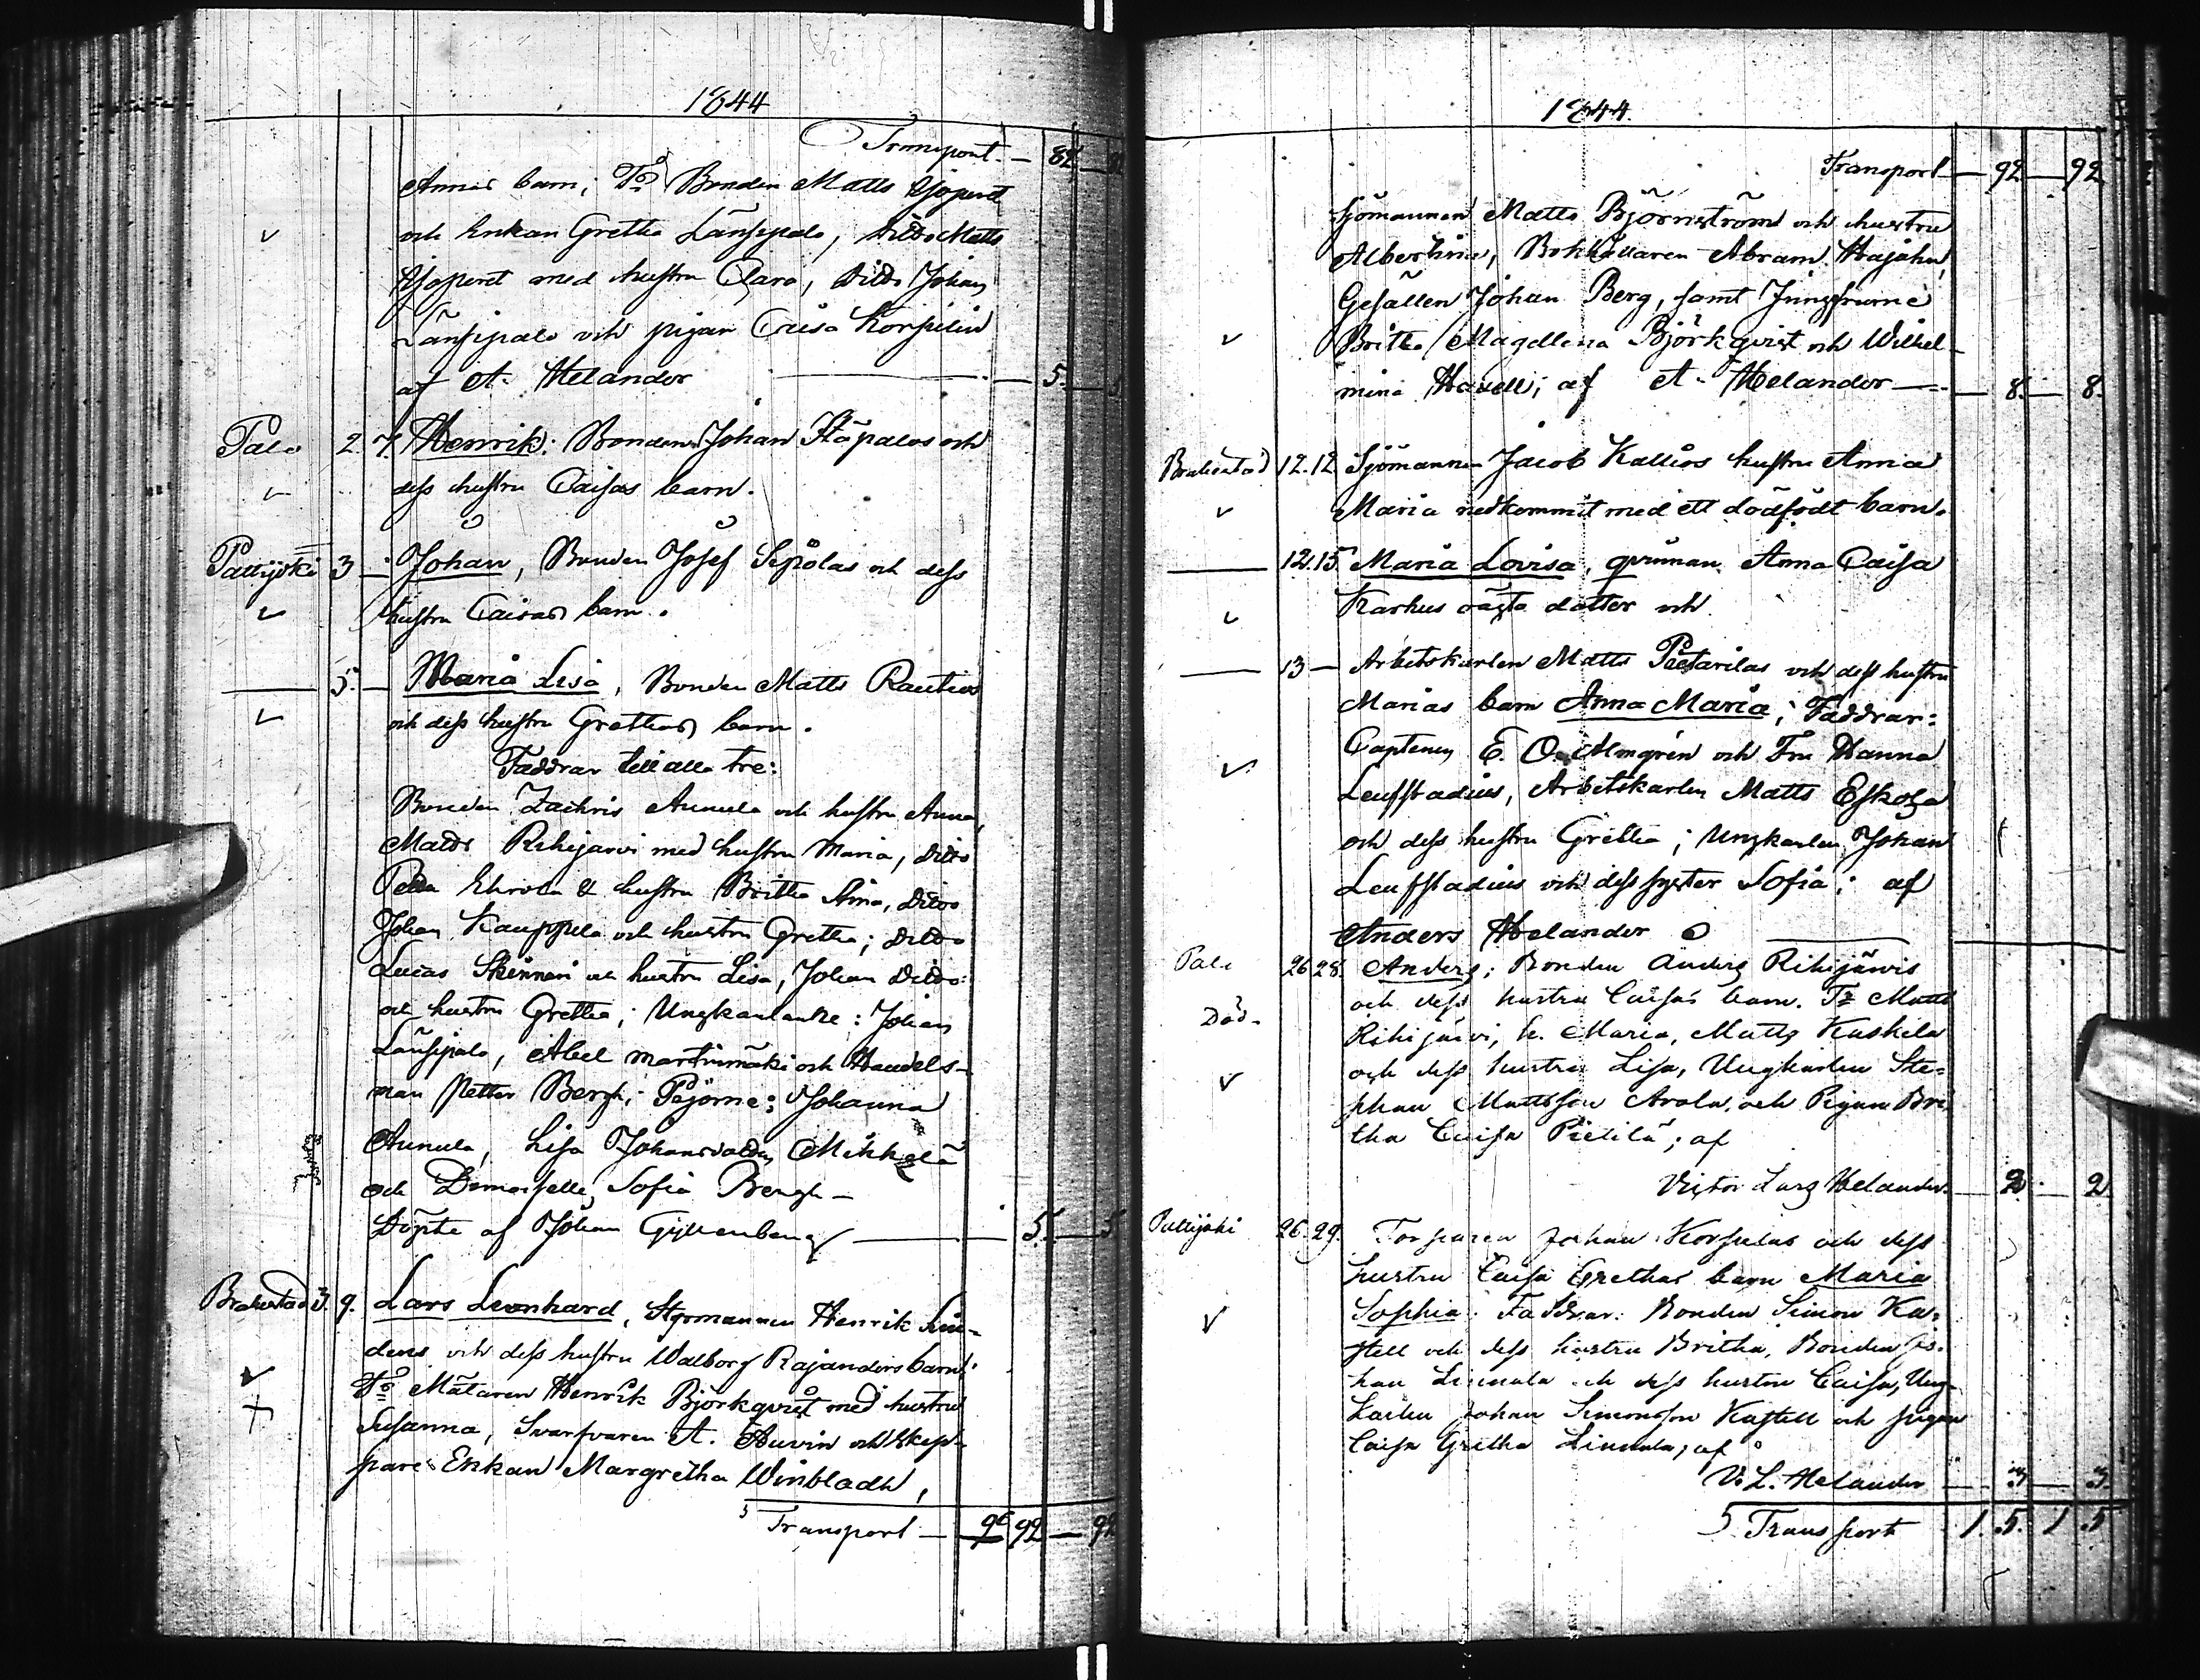 1844
Transport — 82
Annas barn; Fr Bonden Matts Ojoperet
och Enkan Gretha Länsipalo, Dito Matts
Ojoperet med hustru Clara, Dito Johan
Länsipalo och pigan Caisa Korpilin
af A. Helander — 5.
Palo 2. 7. Henrik: Bonden Johan Stäpalos och
dess hustru Caisas barn.
Pattijoki 3 — Johan, Bonden Josef Sipolas och dess
hustru Caisas barn.
— 5. — Maria Lisa, Bonden Matts Rautios
och dess hustru Grethas barn.
Faddrar till alla tre:
Bonden Zachris Annula och hustru Anna,
Matts Rihijarvi med hustru Maria, Dito
Petter hustru Britha Dito
Johan Kauppila och hustru Gretha; Dito
Lucas och hustru Lisa, Johan Dito
och hustru Gretha; Ungkarlarne: Johan
Länsipalo, Abel Martinmäki och Handels-
man Petter Bergh; Pigorne: Johanna
Annula, Lisa Johansdotter Mikkola
och Demoiselle Sofia Bergh —
Döpte af Johan Gyllenberg — 5. — 5
Brahestad 3. 9. Lars Leonhard, Styrmannen Henrik Lin-
dens och dess hustru Walborg Rajanders barn:
Fr Mätaren Henrik Björkqvist med hustru
Susanna, Svarfvaren A. Auvin och Skep-
pare Enkan Margretha Winbladh,
5 Transport — 92 — 92
1844.
Transport — 92 — 92
Sjömannen Matts Björnström och hustru
Albertina, Bokhållaren Abram Hajahn,
Gesällen Johan Berg, samt Jungfrurne
Britha Magdlena Björkqvist och Wilhel-
mina Havell; af A. Helander — 8. — 8.
Brahestad 12. 12 Sjömannen Jacob Kallios hustru Anna
Maria nedkommit med ett dödfödt barn.
— 12. 15 Maria Lovisa, qvinnan Anna Caisa
Karhus oägta dotter och
— 13 — Arbetskarlen Matts Pietarilas och dess hustru
Marias barn Anna Maria; Faddrar:
Capteney E. O. Almgrén och Fru Hanna
Leufstadius, Arbetskarlen Matts Eskola
och dess hustru Gretha; Ungkarlen Johan
Leufstadius och dess syster Sofia; af
Anders Helander
Palo 26 28. Anders; Bonden Anders Rihijärvis
och dess hustru Caisas barn. Fr Matts
Död.
Rihijärvi, h. Maria, Matts Kaskela
och dess hustru Lisa, Ungkarlen Ste-
phan Mattsson Arola, och Pigan Bri-
tha Caisa Pietilä; af
Victor Lars Helander — 2 — 2
Pattijoki 26. 29. Torparen Johan Korpelas och dess
hustru Caisa Grethas barn Maria
Sophia: Faddrar: Bonden Simon Ka-
stell och dess hustru Britha, Bonden Jo-
han Linnala och dess hustru Caisa, Ung-
karlen Johan Simonsson Kastell och pigan
Caisa Gretha Linnala; af
V. L. Helander — 3 — 3.
5 Transport 1. 5. 1. 5